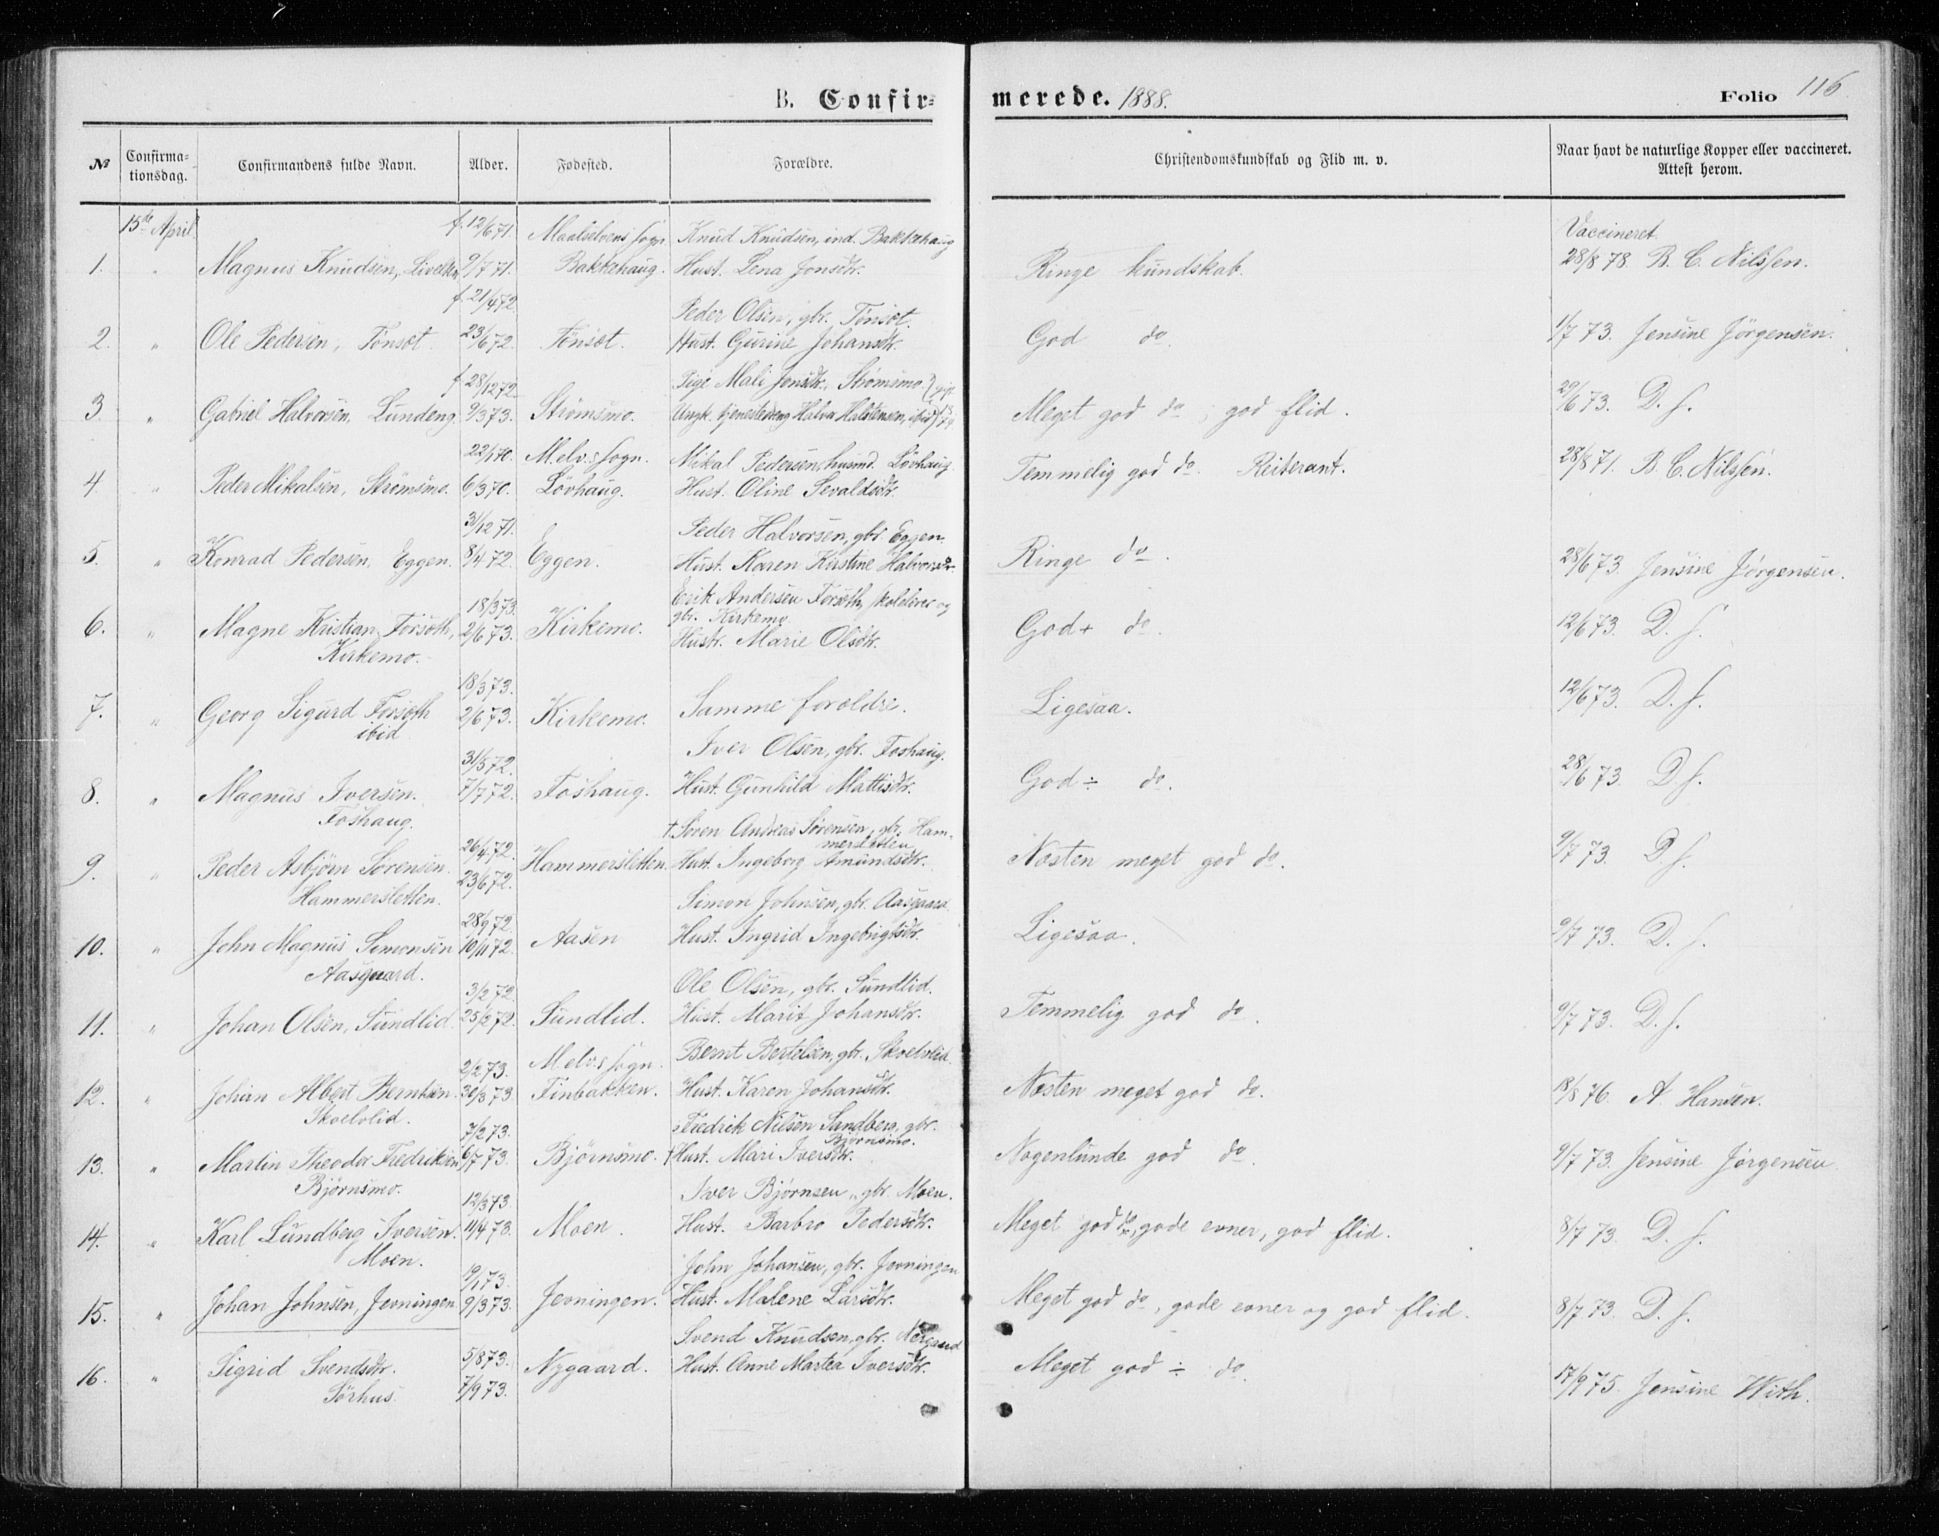 B. Confir=merede. 1888. Folio 116
№ Confirma=tionsdag. Confirmandens fulde Navn. Alder. Fødested. Forældre. Christendomskundskab og Flid m. v. Naar havt de naturlige Kopper eller vaccineret. Attest herom.
15de April f. 12/6 71. Maalselvens sogn. Knud Knudsen, ind. Bakkehaug Vaccineret
1. " Magnus Knudsen, 9/7 71. Bakkehaug. Hust. Lena Jonsdtr. Ringe kundskab. 28/8 78. B. C. Nilssen.
f. 21/4 72 Peder Olsen, gbr. Fønsøt.
2. " Ole Pedersen, Fønsøt. 23/6 72. Fønsøt. Hust. Gurine Johansdtr. God do. 1/7 73. Jensine Jörgensen.
f 28/12 72 Pige Mali Jonsdtr. Strømsmo.
3. " Gabriel Halvorsen, Lundeng. 9/3 73. Strømsmo. Ungk. tjenestedreng Halvor Halstensen, ibid Meget god do, god flid. 29/6 73. D. s.
22/1 70. Melvs sogn. Mikal Pedersen, husmd. Lövhaug.
4 " Peder Mikalsen, Strømsmo. 6/3 70. Lövhaug. Hust. Oline Sevaldsdtr. Temmelig god do. Reiterant. 28/8 71. B. C. Nilssen.
31/12 71. Peder Halvorsen, gbr. Eggen.
5. " Konrad Pedersen, Eggen. 8/4 72. Eggen. Hust. Karen Kirstine Halvorsdr. Ringe do. 28/6 73. Jensine Jörgensen.
18/3 73. Erik Andersen Forsøth, skolelærer og
gbr. Kirkemo
6. " Magne Kristian Forsøth, 2/6 73. Kirkemo. Hustr. Marie Olsdtr. God+ do. 12/6 73. D. s.
Kirkemo.
18/3 73.
7. " Georg Sigurd Forsøth 2/6 73. Kirkemo. Samme foroldre. Ligesaa. 12/6 73. D. s.
ibid
31/5 72. Iver Olsen, gbr. Foshaug.
8. " Magnus Iversen. 7/7 72. Foshaug. Hust. Gunhild Mattisdtr. God ÷ do. 28/6 73. D s.
Foshaug.
26/4 72. † Søren Andreas Sørensen, gbr. Ham-
merslotten
9. " Peder Asbjörn Sørensen. 23/6 72. Hammersletten. Hust. Ingeborg Amundsdtr. Næsten meget god do. 9/7 73. D s.
Hammersletten.
28/9 72. Simon Johnsen, gbr. Aasgaard.
10. " John Magnus Simonsen 10/11 72. Aasen Hust. Ingrid Ingebrigtsdtr. Ligesaa. 9/7 73. D. s.
Aasgaard.
3/2 72. Ole Olsen, gbr. Sundlid.
11. " Johan Olsen, Sundlid. 25/2 72. Sundlid. Hust. Marit Johansdtr. Temmelig god do. 9/7 73. D. s.
2/2 73. Melvs sogn. Bernt Bertelsen, gbr. Skoelvlid.
12. " Johan Albert Berntsen. 30/3 73 Finbakken. Hust. Karen Johansdtr. Næsten meget god do. 18/8 76. A. Hansen.
Skoelvlid.
7/2 73. Fredrik Nilsen Sandberg, gbr.
Björnsmo.
13. " Martin Theodor Fredriksen 6/7 73. Bjørnsmo. † Hust. Mari Iversdtr. Nogenlunde god do. 9/7 73. Jensine Jørgensen.
Bjørnsmo.
12/3 73. Iver Bjørnsen, gbr. Moen.
14. " Karl Lundberg Iversen. 11/4 73. Moen. Hust. Barbro Pedersdtr. Meget god do, gode evner, god flid. 8/7 73. D. s.
Moen.
19/1 73. John Johansen, gbr. Jerningen
15. " Johan Johnsen, Jerningen. 9/3 73. Jerningen. Hust. Malene Larsdtr. Meget god do, gode evner og god flid. 8/7 73. D. s.
5/8 73. Svend Knudsen, gbr.
16. " Sigrid Svendsdtr. 7/9 73. Nygaard. Hust. Anne Martea Iversdtr. Meget god ÷ do. 17/9 75. Jensine With.
Sörhus.